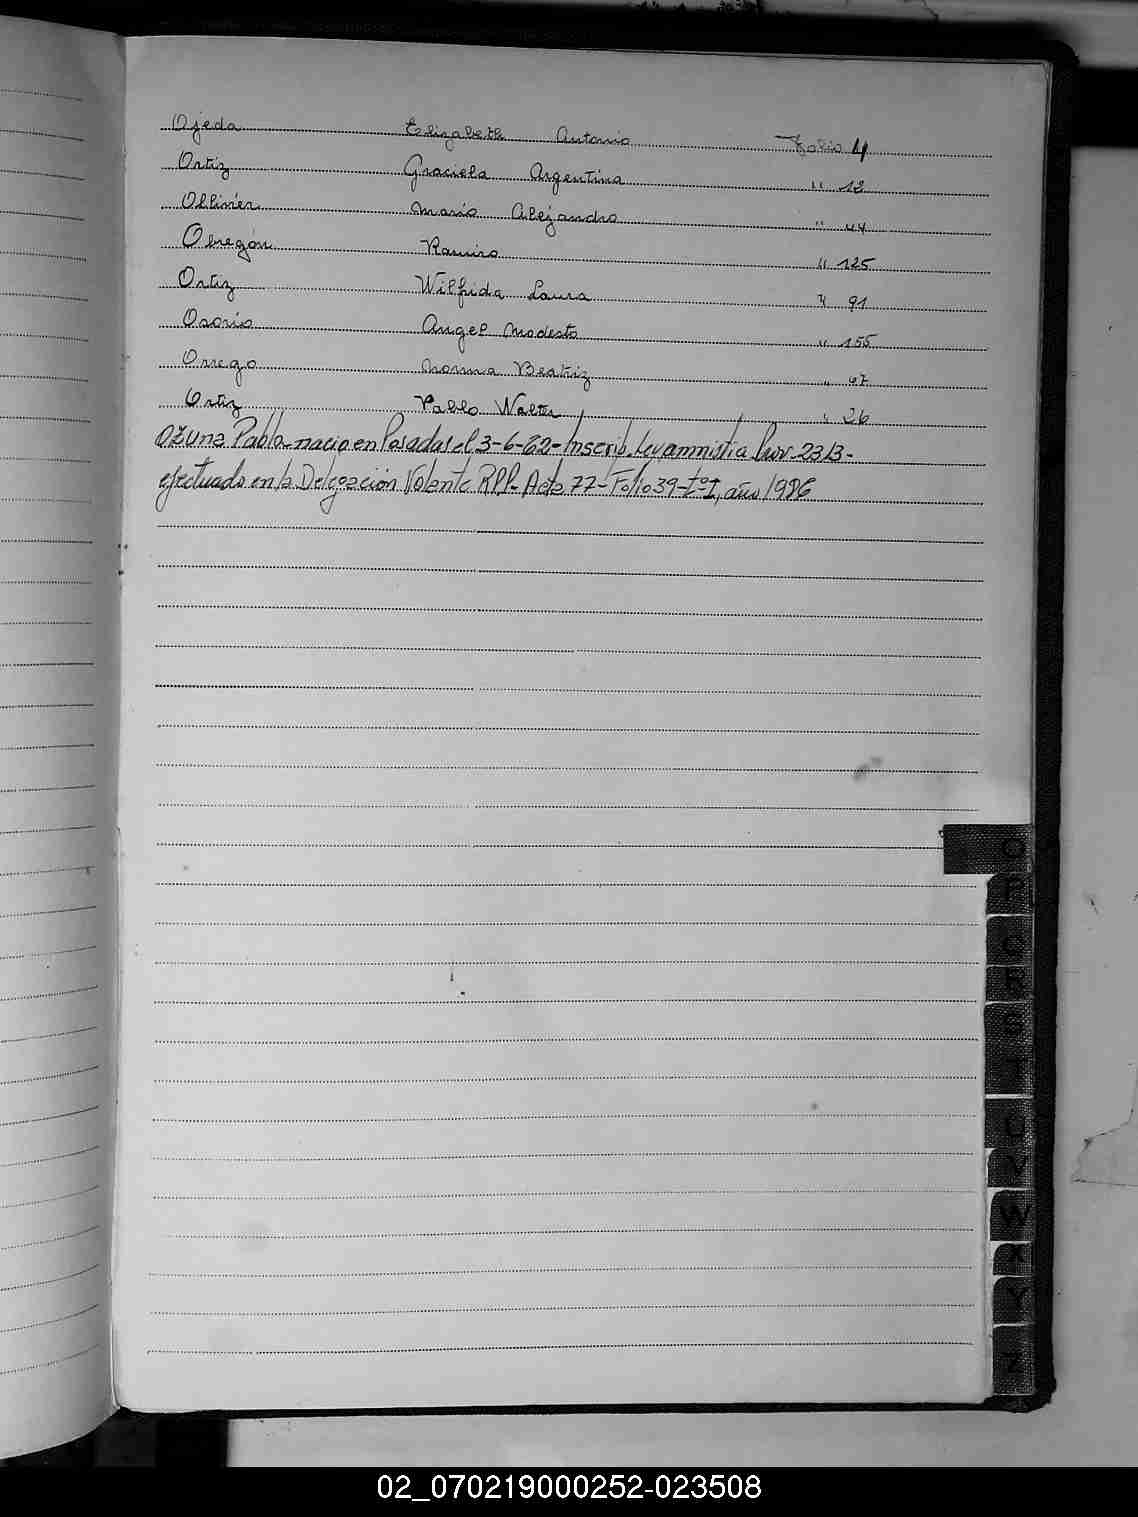 Ojeda Elizabeth Antonia Folio 4
Ortiz Graciela Argentina " 12
Ollivier Mario Alejandro " 44
Obregón Ramiro " 125
Ortiz Wilfrida Laura " 91
Osorio Angel Modesto " 155
Orrego Norma Beatriz " 47
Ortiz Pablo Walter " 26
Ozuna Pablo-nacio en Posadas el 3-6-62-Inscrip. Ley amnistia Prov. 2313-
efectuado en la Delegación Volante RPP- Acta 77-Folio 39-Tº-I, año 1986
O
P
Q
R
S
T
U
V
W
X
Y
Z
02_070219000252-023508